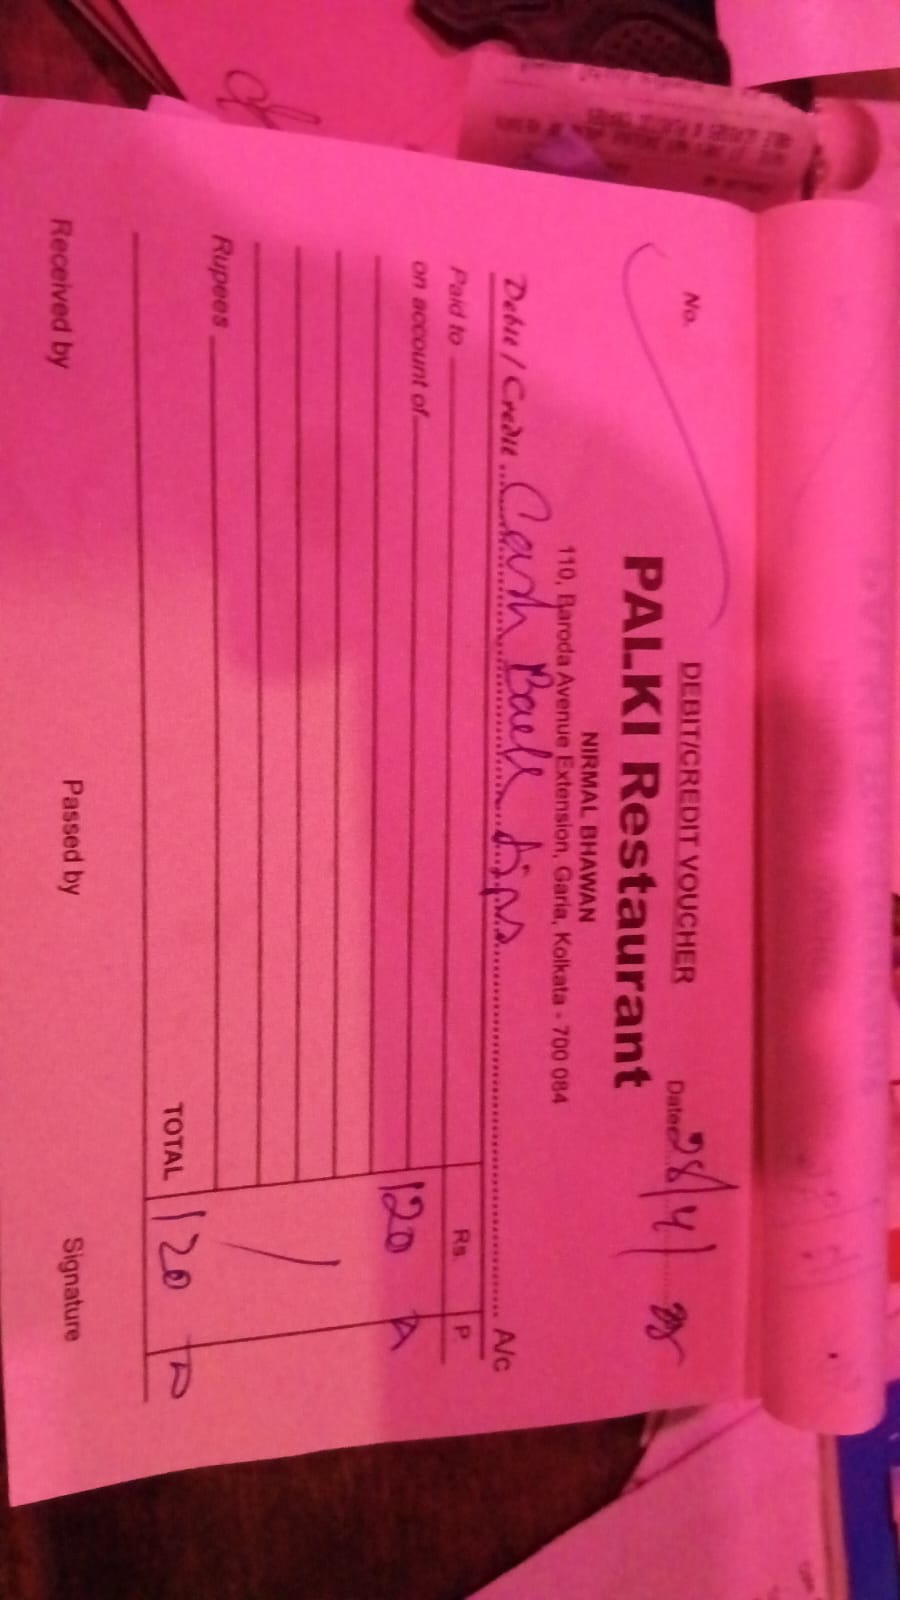 DEBIT/CREDIT VOUCHER
No.
Date 28/4/
PALKI Restaurant
NIRMAL BHAWAN
110, Baroda Avenue Extension, Garia, Kolkata - 700 084
Debit / Credit Cash Back A/c
Paid to Rs. P
on account of 120
Rupees
TOTAL 120
Received by Passed by Signature